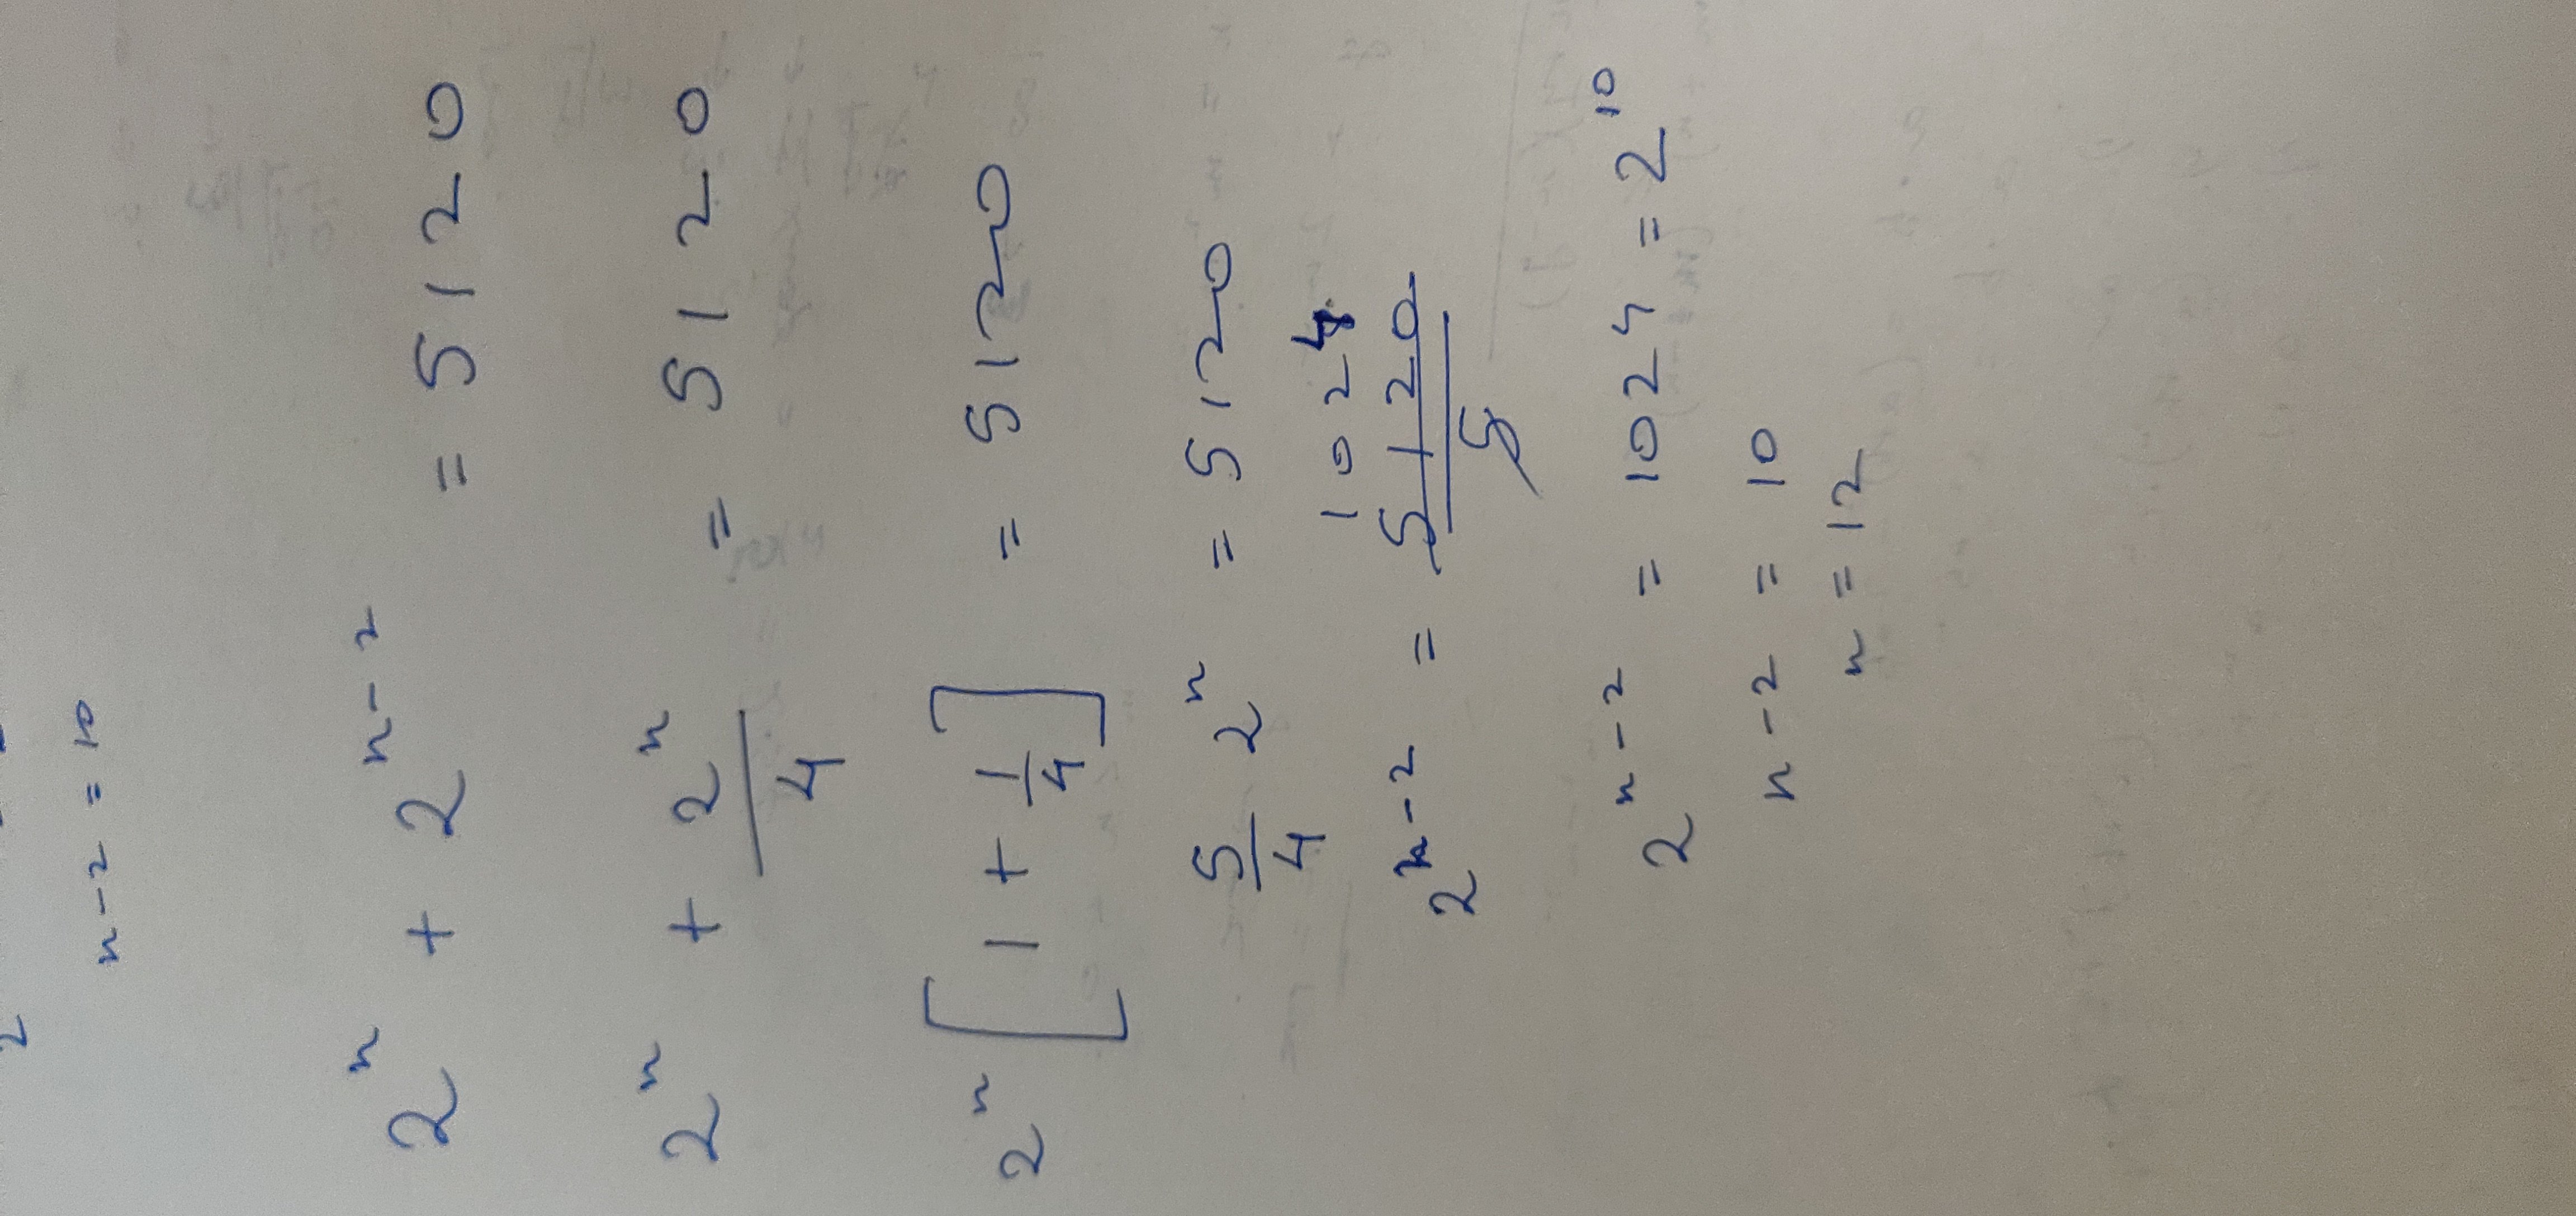 n-2 = 10
2^n + 2^{n-2} = 5120
2^n + 2^n/4 = 5120
2^n [1 + 1/4] = 5120
5/4 2^n = 5120
1024
2^{n-2} = 5120/5
2^{n-2} = 1024 = 2^10
n-2 = 10
n = 12